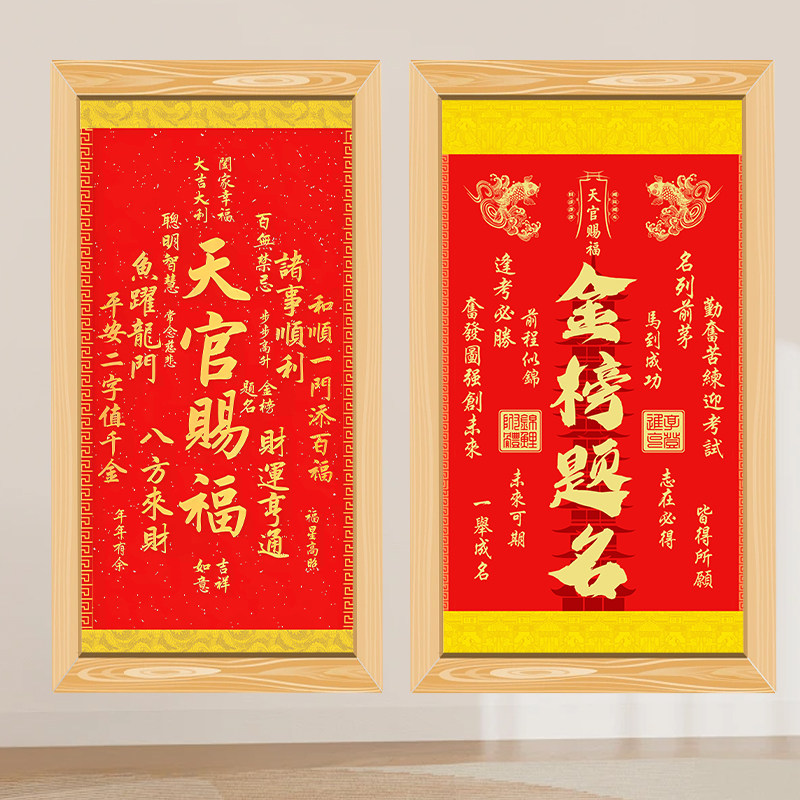 闔家幸福
大吉大利
天官賜福
和順一門添百福
諸事順利
百無禁忌
步步高升
金榜
題名
財運亨通
福星高照
聰明智慧
常念慈悲
魚躍龍門
平安二字值千金
八方來財
年年有余
吉祥
如意
天官賜福
金榜题名
勤奮苦練迎考試
名列前茅
馬到成功
志在必得
皆得所願
逢考必勝
前程似錦
奮發圖强創未來
錦鯉
附體
未來可期
一舉成名